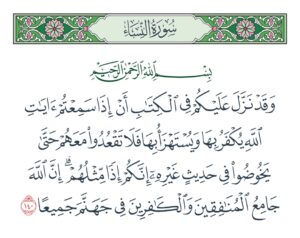 سُورَةُ النِّسَاءِ
بِسْمِ اللَّهِ الرَّحْمَٰنِ الرَّحِيمِ
وَقَدْ نَزَّلَ عَلَيْكُمْ فِي الْكِتَابِ أَنْ إِذَا سَمِعْتُمْ ءَايَاتِ
اللَّهِ يُكْفَرُ بِهَا وَيُسْتَهْزَأُ بِهَا فَلَا تَقْعُدُوا مَعَهُمْ حَتَّىٰ
يَخُوضُوا فِي حَدِيثٍ غَيْرِهِ ۚ إِنَّكُمْ إِذًا مِّثْلُهُمْ ۗ إِنَّ اللَّهَ
جَامِعُ الْمُنَافِقِينَ وَالْكَافِرِينَ فِي جَهَنَّمَ جَمِيعًا ١٤٠